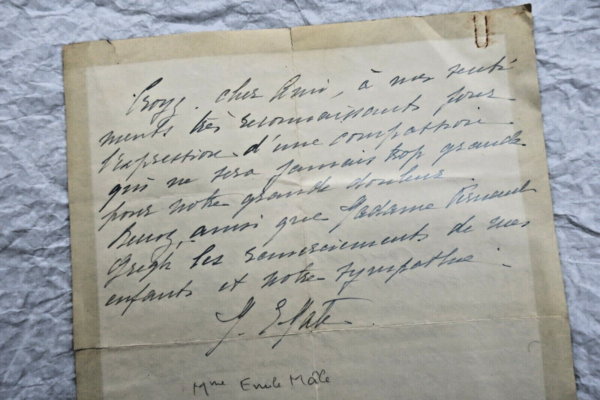 Croyez, cher Ami, à mes senti-
ments très reconnaissants pour
l'expression d'une compassion
qui ne sera jamais trop grande
pour notre grande douleur.
Recevez, ainsi que Madame Fernand
Gregh les remerciements de mes
enfants et notre sympathie.
Mme Emile Mâle